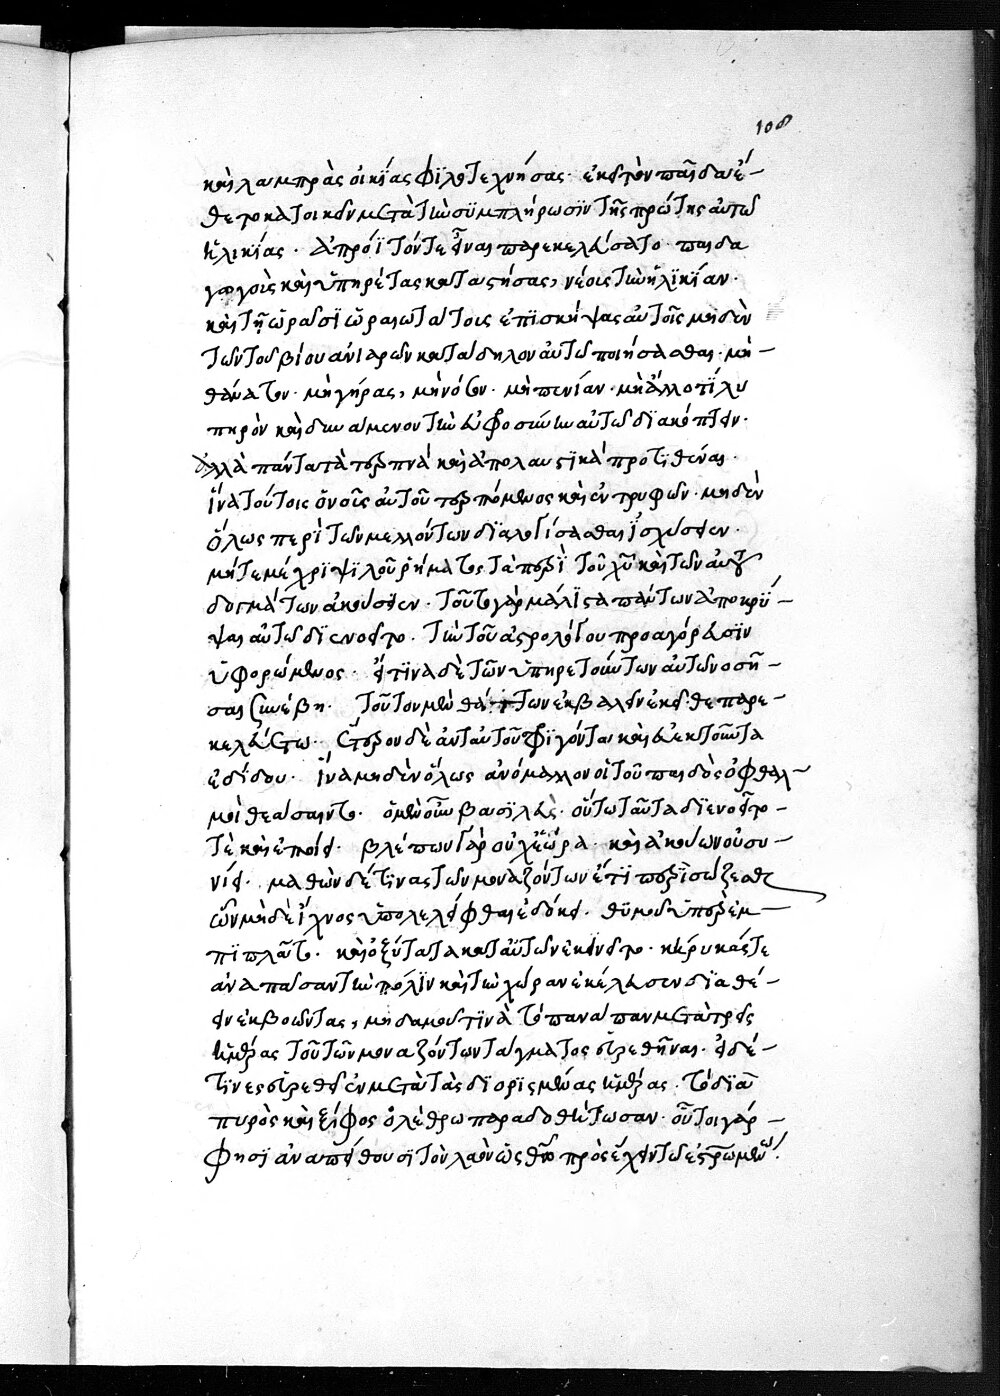 108
καὶ λαμπρὰς οἰκίας φιλοτεχνήσας· ἐκεῖ τὸν παῖδα ἔ-
θετο κατοικεῖν μετὰ τὴν συμπλήρωσιν τῆς πρώτης αὐτῶ
ἡλικίας· ἀπρόϊτόν τε εἶναι παρεκελεύσατο· παιδα
γωγοὺς καὶ ὑπηρέτας καταστήσας, νέοις τὴν ἡλικίαν·
καὶ τῇ ὥρα ὡραιωτάτοις ἐπισκήψας αὐτοῖς μηδὲν
τῶν τοῦ βίου ἀνιαρῶν κατάδηλον αὐτῶ ποιήσασθαι· μὴ
θάνατον· μὴ γήρας, μὴ νόσον· μὴ πενίαν· μὴ ἄλλο τί λυ
πηρὸν καὶ δυνάμενον τὴν εὐφροσύνην αὐτῶ διακόπτειν·
ἀλλὰ πάντα τὰ τερπνὰ καὶ ἀπολαυστικὰ προτιθέναι·
ἵνα τούτοις ὁ νοῦς αὐτοῦ τερπόμενος καὶ ἐντρυφῶν· μηδὲν
ὅλως περὶ τῶν μελλόντων διαλογίσασθαι ἰσχύσειεν·
μήτε μέχρι ψιλοῦ ῥήματος τὰ περὶ τοῦ χυ καὶ τῶν αὐτοῦ
δογμάτων ἀκούσειεν· τοῦτο γὰρ μάλιστα πάντων ἀποκρύ-
ψαι αὐτῶ διενοεῖτο· τὴν τοῦ ἀστρολόγου προαγόρευσιν
ὑφορώμενος· εἴ τινα δὲ τῶν ὑπηρετούντων αὐτῶ νοσῆ-
σαι συνέβη· τοῦτον μὲν θᾶττον ἐκβαλεῖν ἐκεῖθε παρε-
κελεύετο· ἕτερον δὲ ἀντ αὐτοῦ σφριγόντα καὶ εὐεκτοῦντα
ἐδίδου· ἵνα μηδὲν ὅλως ἀνόμαλον οἱ τοῦ παιδὸς ὀφθαλ-
μοὶ θεάσαιντο· ὁ μὲν οὖν βασιλεὺς· οὕτω ταῦτα διενοεῖτο-
τὲ καὶ ἐποίει· βλέπων γὰρ οὐχ ἑώρα· καὶ ἀκούων οὐ συ-
νίει· μαθὼν δέ τινας τῶν μοναζόντων ἔτι περισώζεσθαι
ὧν μηδὲ ἴχνος ὑπολελεῖφθαι ἐδόκει· θυμοῦ ὑπερεμ-
πίπλατο· καὶ ὀξύτατα κατ αὐτῶν ἐκινεῖτο· κήρυκάς τε
ἀνὰ πᾶσαν τὴν πόλιν καὶ τὴν χώραν ἐκέλευσεν διαθέ-
ειν ἐκβοῶντας, μηδαμοῦ τινὰ τοπαράπαν μετὰ τρεῖς
ἡμέρας τοῦ τῶν μοναζόντων τάγματος εὑρεθῆναι· εἰ δέ-
τινες εὑρεθεῖεν μετὰ τὰς διορισμένας ἡμέρας· τῶ διὰ
πυρὸς καὶ ξίφος ὀλέθρω παραδοθήτωσαν· οὗτοι γάρ-
φησϊ ἀναπείθουσι τὸν λαὸν ὡς θεῶ προσέχειν τῶ ἐσταυρωμένω·